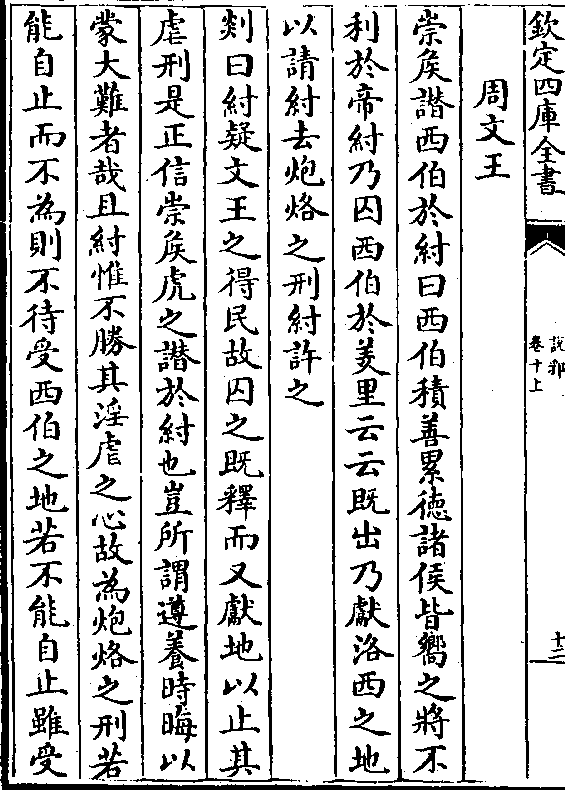 欽定四庫全書
說郛
卷十上
十二
周文王
崇矦譖西伯於紂曰西伯積善累徳諸侯皆嚮之將不
利於帝紂乃囚西伯於羑里云云既出乃獻洛西之地
以請紂去炮烙之刑紂許之
剡曰紂疑文王之得民故囚之既釋而又獻地以止其
虐刑是正信崇矦虎之譖於紂也豈所謂遵養時晦以
蒙大難者哉且紂惟不勝其淫虐之心故為炮烙之刑若
能自止而不為則不待受西伯之地若不能自止雖受